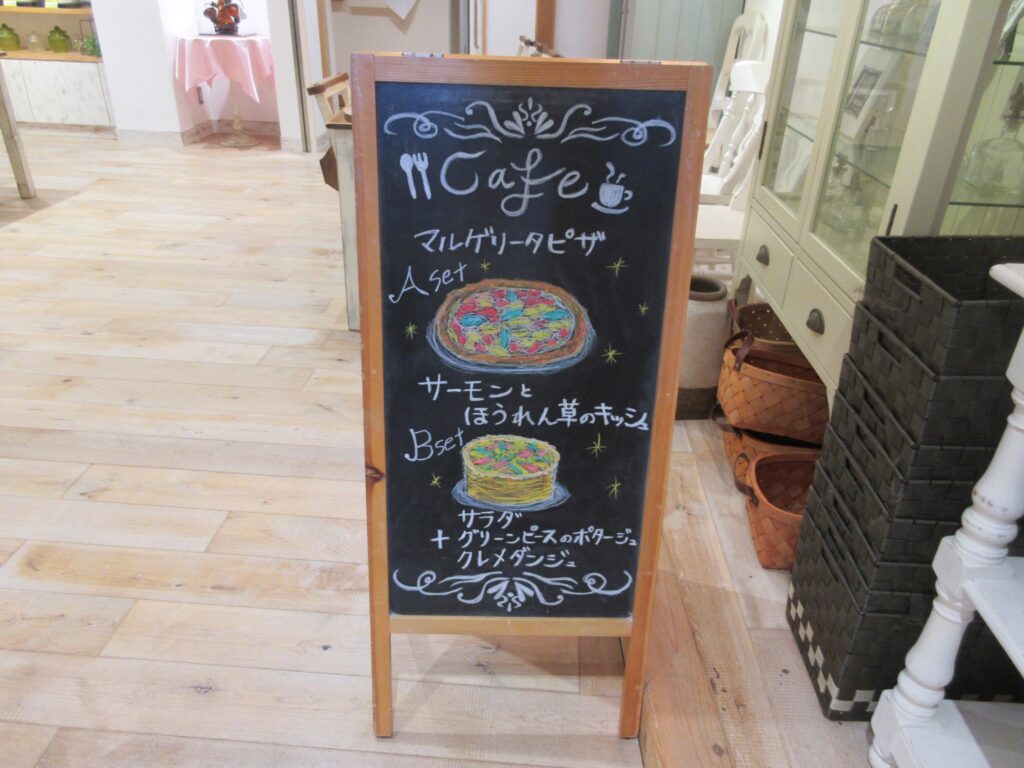 Cafe
マルゲリータピザ
A set
サーモンと
ほうれん草のキッシュ
B set
サラダ
+ グリーンピースのポタージュ
クレメダンジュ